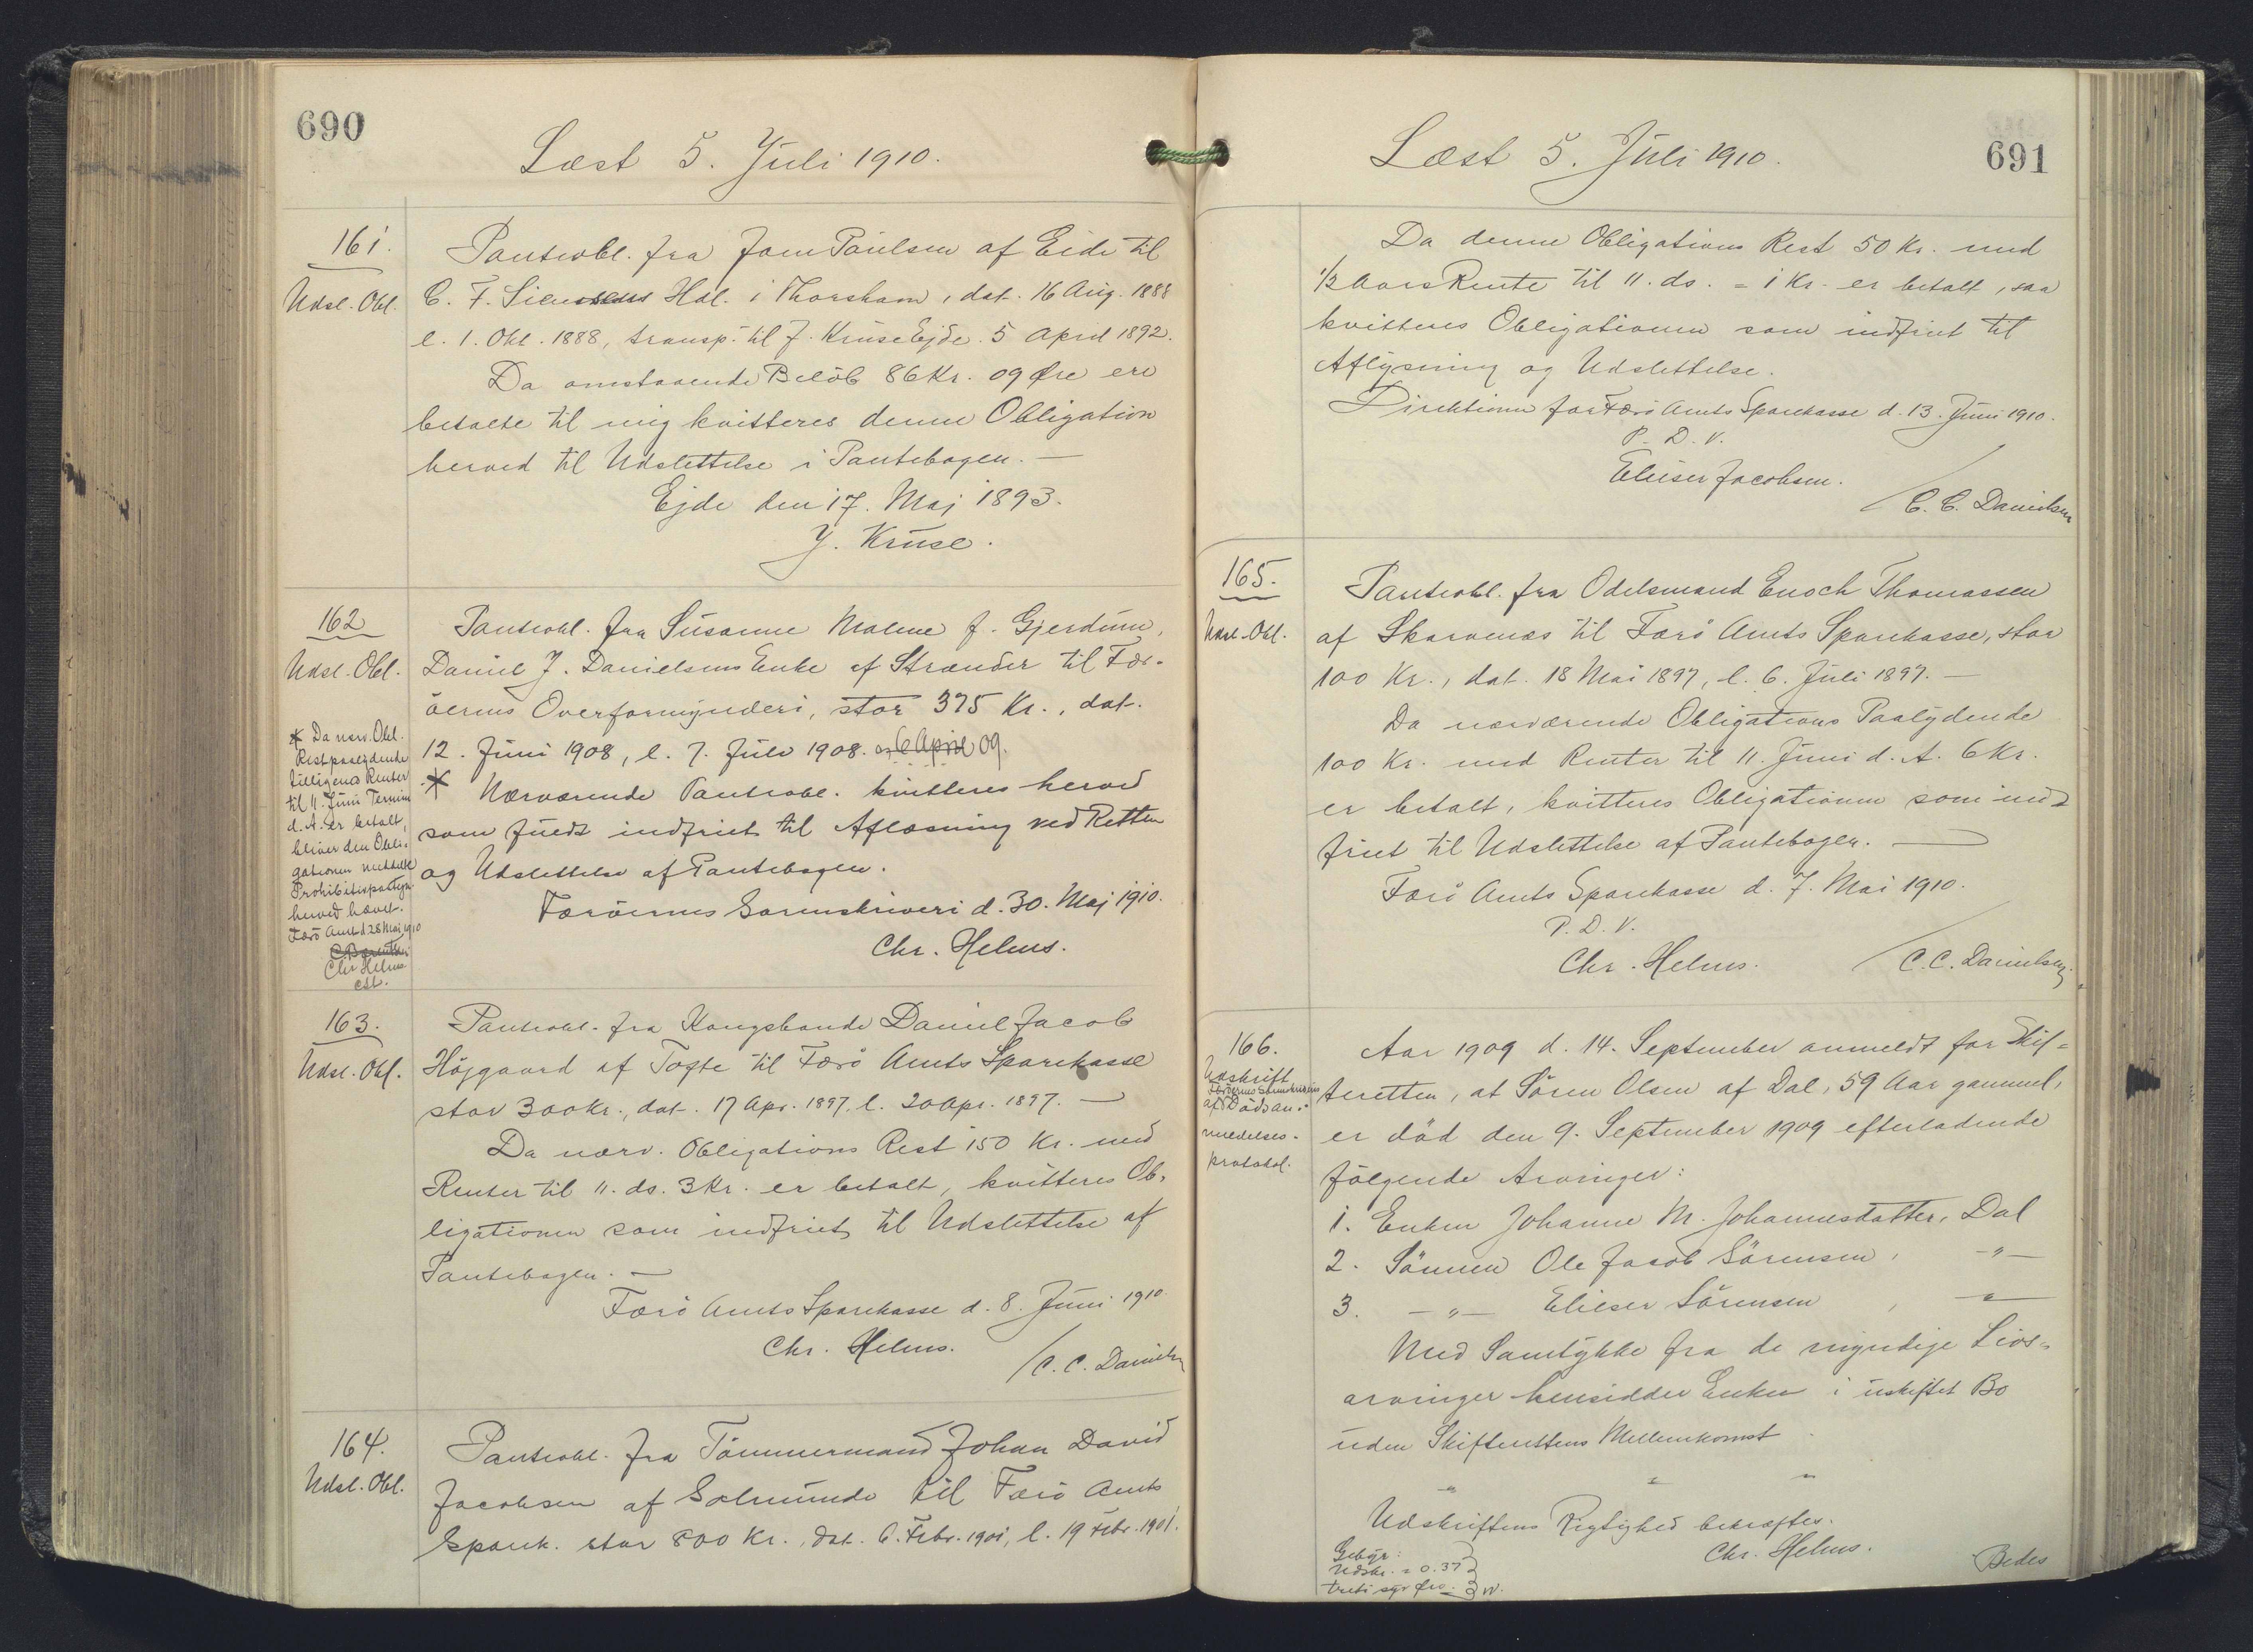 690
Læst 5. Juli 1910.
161.
Udsl. Obl.
Panteobl. fra Joen Paulsen af Eide til
C. F. Siemsens Hdl. i Thorshavn, dat. 16 Aug. 1888
l. 1. Okt. 1888, transp. til J. Kruse Ejde. 5 April 1892.
Da omstaaende Beløb 86 Kr. 09 Øre ere
betalte til mig kvitteres denne Obligation
herved til Udslettelse i Pantebogen. —
Ejde den 17. Maj 1893.
J. Kruse.
162
Udsl. Obl.
Panteobl. fra Susanne Malene f. Gjerdum,
Daniel J. Danielsens Enke af Strænder til Fær-
öernes Overformynderi, stor 375 Kr., dat.
12. Juni 1908, l. 7. Juli 1908. 6 April 09.
* Nærværende Panteobl. kvitteres herved
som fuldt indfriet til Aflæsning ved Retten
og Udslettelse af Pantebogen.
Færöernes Sorenskriveri d. 30. Maj 1910.
Chr. Helms.
* Da nærv. Obl.
Restpaalydende
tilligemed Renter
til 11. Juni Termin
d. A. er betalt,
bliver den Obli-
gationen meddelte
Prohibitivpaategn.
herved hævet.
Færö Amt d. 28 Maj 1910
Chr Helms
cst.
163.
Udsl. Obl.
Panteobl. fra Kongsbonde Daniel Jacob
Höjgaard af Tofte til Færö Amts Sparekasse
stor 300 Kr., dat. 17 Apr. 1897, l. 20 Apr. 1897. —
Da nærv. Obligations Rest 150 Kr. med
Renter til 11. ds. 3 Kr. er betalt, kvitteres Ob-
ligationen som indfriet til Udslettelse af
Pantebogen. —
Færö Amts Sparekasse d. 8. Juni 1910.
Chr. Helms.
/ C. C. Danielsen
164.
Udsl. Obl.
Panteobl. fra Tömmermand Johan David
Jacobsen af Solmunde til Færö Amts
Spark. stor 800 Kr., dat. 6. Febr. 1901, l. 19 Febr. 1901.
691
Læst 5. Juli 1910.
Da denne Obligations Rest 50 Kr. med
1/2 Aars Rente til 11. ds. = 1 Kr. er betalt, saa
kvitteres Obligationen som indfriet til
Aflysning og Udslettelse.
Direktionen for Færö Amts Sparekasse d. 13. Juni 1910.
P. D. V.
Elieser Jacobsen.
/ C. C. Danielsen
165.
Udsl. Obl.
Panteobl. fra Odelsmand Enoch Thomassen
af Skarvenæs til Færö Amts Sparekasse, stor
100 Kr., dat. 18 Mai 1897, l. 6. Juli 1897. —
Da nærværende Obligations Paalydende
100 Kr. med Renter til 11. Juni d. A. 6 Kr.
er betalt, kvitteres Obligationen som ind-
friet til Udslettelse af Pantebogen. —
Færö Amts Sparekasse d. 7. Mai 1910.
P. D. V.
Chr. Helms.
/ C. C. Danielsen.
166.
Udskrift
af Færöernes Sorenskriveris
Dödsan-
meldelses-
protokol.
Aar 1909 d. 14. September anmeldt for Skif-
teretten, at Sören Olsen af Dal, 59 Aar gammel,
er död den 9. September 1909 efterladende
fölgende Arvinger:
1. Enken Johanne M. Johannesdatter, Dal
2. Sönnen Ole Jacob Sörensen, —"—
3. —"— Elieser Sörensen, —"—
Med Samtykke fra de myndige Livs-
arvinger hensidder Enken i uskiftet Bo
uden Skifterettens Mellemkomst.
" " "
Udskriftens Rigtighed bekræftes.
Chr. Helms.
Gebyr:
Udskr. = 0.37
treti syv Øre.
Bedes